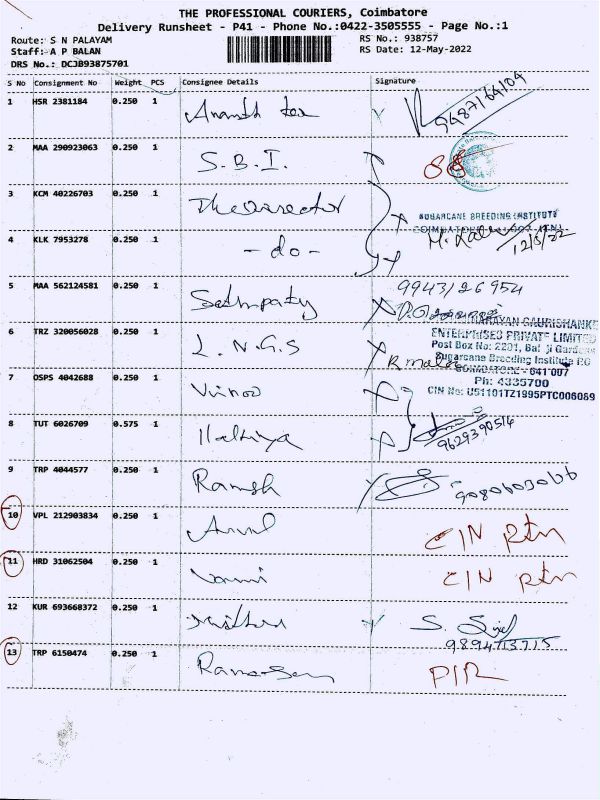 THE PROFESSIONAL COURIERS, Coimbatore
Delivery Runsheet - P41 - Phone No.:0422-3505555 - Page No.:1
Route: S N PALAYAM
RS No.: 938757
Staff: A P BALAN
RS Date: 12-May-2022
DRS No.: DCJB93875701
S No Consignment No Weight PCS Consignee Details Signature
1 HSR 2381184 0.250 1 Ananth tex 9487164104
2 MAA 290923063 0.250 1 S.B.I. 88
3 KCM 40226703 0.250 1 The Director
SUGARCANE BREEDING INSTITUTE
4 KLK 7953278 0.250 1 - do - 12/5/22
5 MAA 562124581 0.250 1 Sathpathy 9943126954
NARAYAN GAURISHANKE
6 TRZ 320056028 0.250 1 L.N.G.S
ENTERPRISES PRIVATE LIMITED
Post Box No: 2201, Bal ji Gardens
Sugarcane Breeding Institute P.O
COIMBATORE - 641 007
7 OSPS 4042688 0.250 1 Vinoo
Ph: 4335700
CIN No: U51101TZ1995PTC006089
8 TUT 6026709 0.575 1 9629390514
9 TRP 4044577 0.250 1 Ramesh 9080603066
10 VPL 212903834 0.250 1 Arul CIN Rtn
11 HRD 31062504 0.250 1 CIN Rtn
12 KUR 693668372 0.250 1 9894713715
13 TRP 6150474 0.250 1 PIR